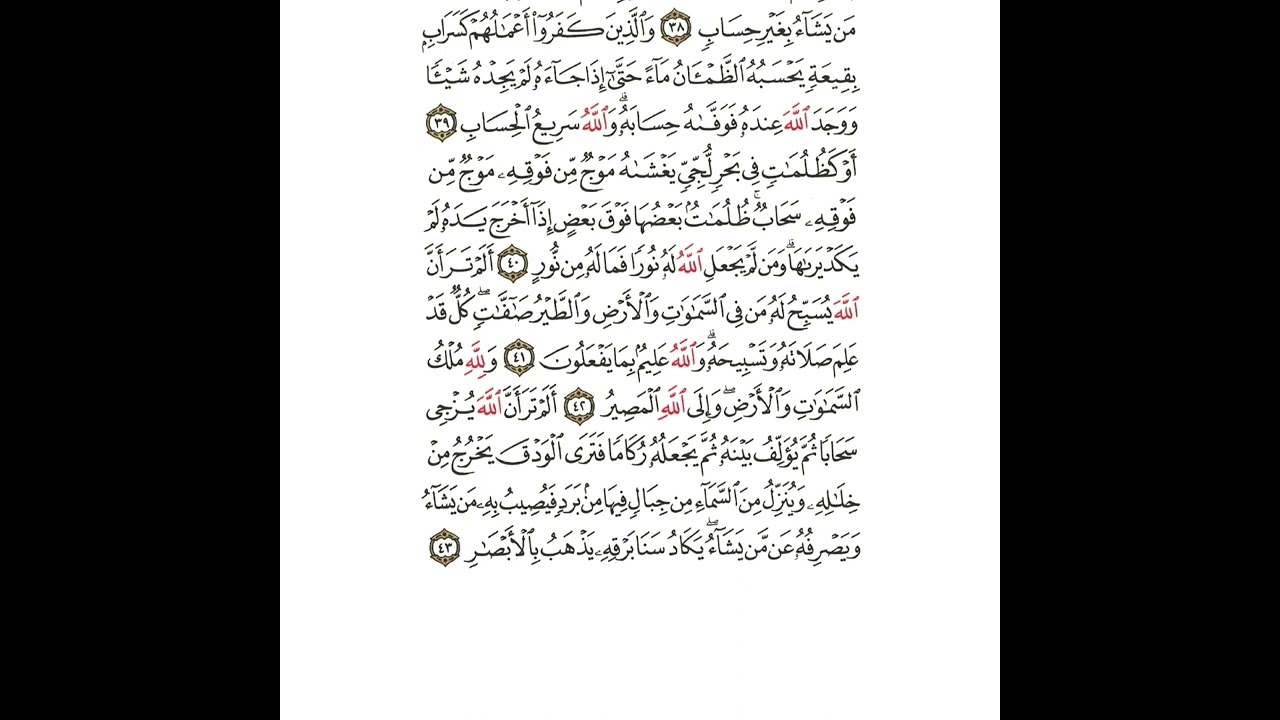 مَن يَشَآءُ بِغَيْرِ حِسَابٍ ٣٨ وَٱلَّذِينَ كَفَرُوٓا۟ أَعْمَـٰلُهُمْ كَسَرَابٍۭ
بِقِيعَةٍ يَحْسَبُهُ ٱلظَّمْـَٔانُ مَآءً حَتَّىٰٓ إِذَا جَآءَهُۥ لَمْ يَجِدْهُ شَيْـًٔا
وَوَجَدَ ٱللَّهَ عِندَهُۥ فَوَفَّىٰهُ حِسَابَهُۥ ۗ وَٱللَّهُ سَرِيعُ ٱلْحِسَابِ ٣٩
أَوْ كَظُلُمَـٰتٍ فِى بَحْرٍ لُّجِّىٍّ يَغْشَىٰهُ مَوْجٌ مِّن فَوْقِهِۦ مَوْجٌ مِّن
فَوْقِهِۦ سَحَابٌ ۚ ظُلُمَـٰتٌۢ بَعْضُهَا فَوْقَ بَعْضٍ إِذَآ أَخْرَجَ يَدَهُۥ لَمْ
يَكَدْ يَرَىٰهَا ۗ وَمَن لَّمْ يَجْعَلِ ٱللَّهُ لَهُۥ نُورًا فَمَا لَهُۥ مِن نُّورٍ ٤٠ أَلَمْ تَرَ أَنَّ
ٱللَّهَ يُسَبِّحُ لَهُۥ مَن فِى ٱلسَّمَـٰوَٰتِ وَٱلْأَرْضِ وَٱلطَّيْرُ صَـٰٓفَّـٰتٍ ۖ كُلٌّ قَدْ
عَلِمَ صَلَاتَهُۥ وَتَسْبِيحَهُۥ ۗ وَٱللَّهُ عَلِيمٌۢ بِمَا يَفْعَلُونَ ٤١ وَلِلَّهِ مُلْكُ
ٱلسَّمَـٰوَٰتِ وَٱلْأَرْضِ ۖ وَإِلَى ٱللَّهِ ٱلْمَصِيرُ ٤٢ أَلَمْ تَرَ أَنَّ ٱللَّهَ يُزْجِى
سَحَابًا ثُمَّ يُؤَلِّفُ بَيْنَهُۥ ثُمَّ يَجْعَلُهُۥ رُكَامًا فَتَرَى ٱلْوَدْقَ يَخْرُجُ مِنْ
خِلَـٰلِهِۦ وَيُنَزِّلُ مِنَ ٱلسَّمَآءِ مِن جِبَالٍ فِيهَا مِنۢ بَرَدٍ فَيُصِيبُ بِهِۦ مَن يَشَآءُ
وَيَصْرِفُهُۥ عَن مَّن يَشَآءُ ۖ يَكَادُ سَنَا بَرْقِهِۦ يَذْهَبُ بِٱلْأَبْصَـٰرِ ٤٣